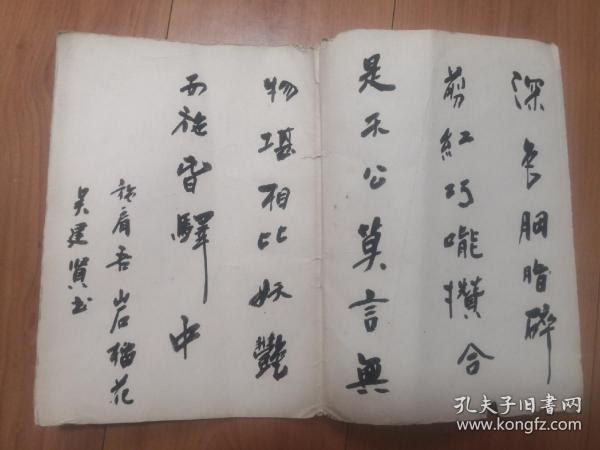 深色胭脂碎
剪紅巧能攢合
是天公莫言無
物堪相比妖豔
西施春驛中
施肩吾山石榴花
吴建賢书
孔夫子旧书网
www.kongfz.com